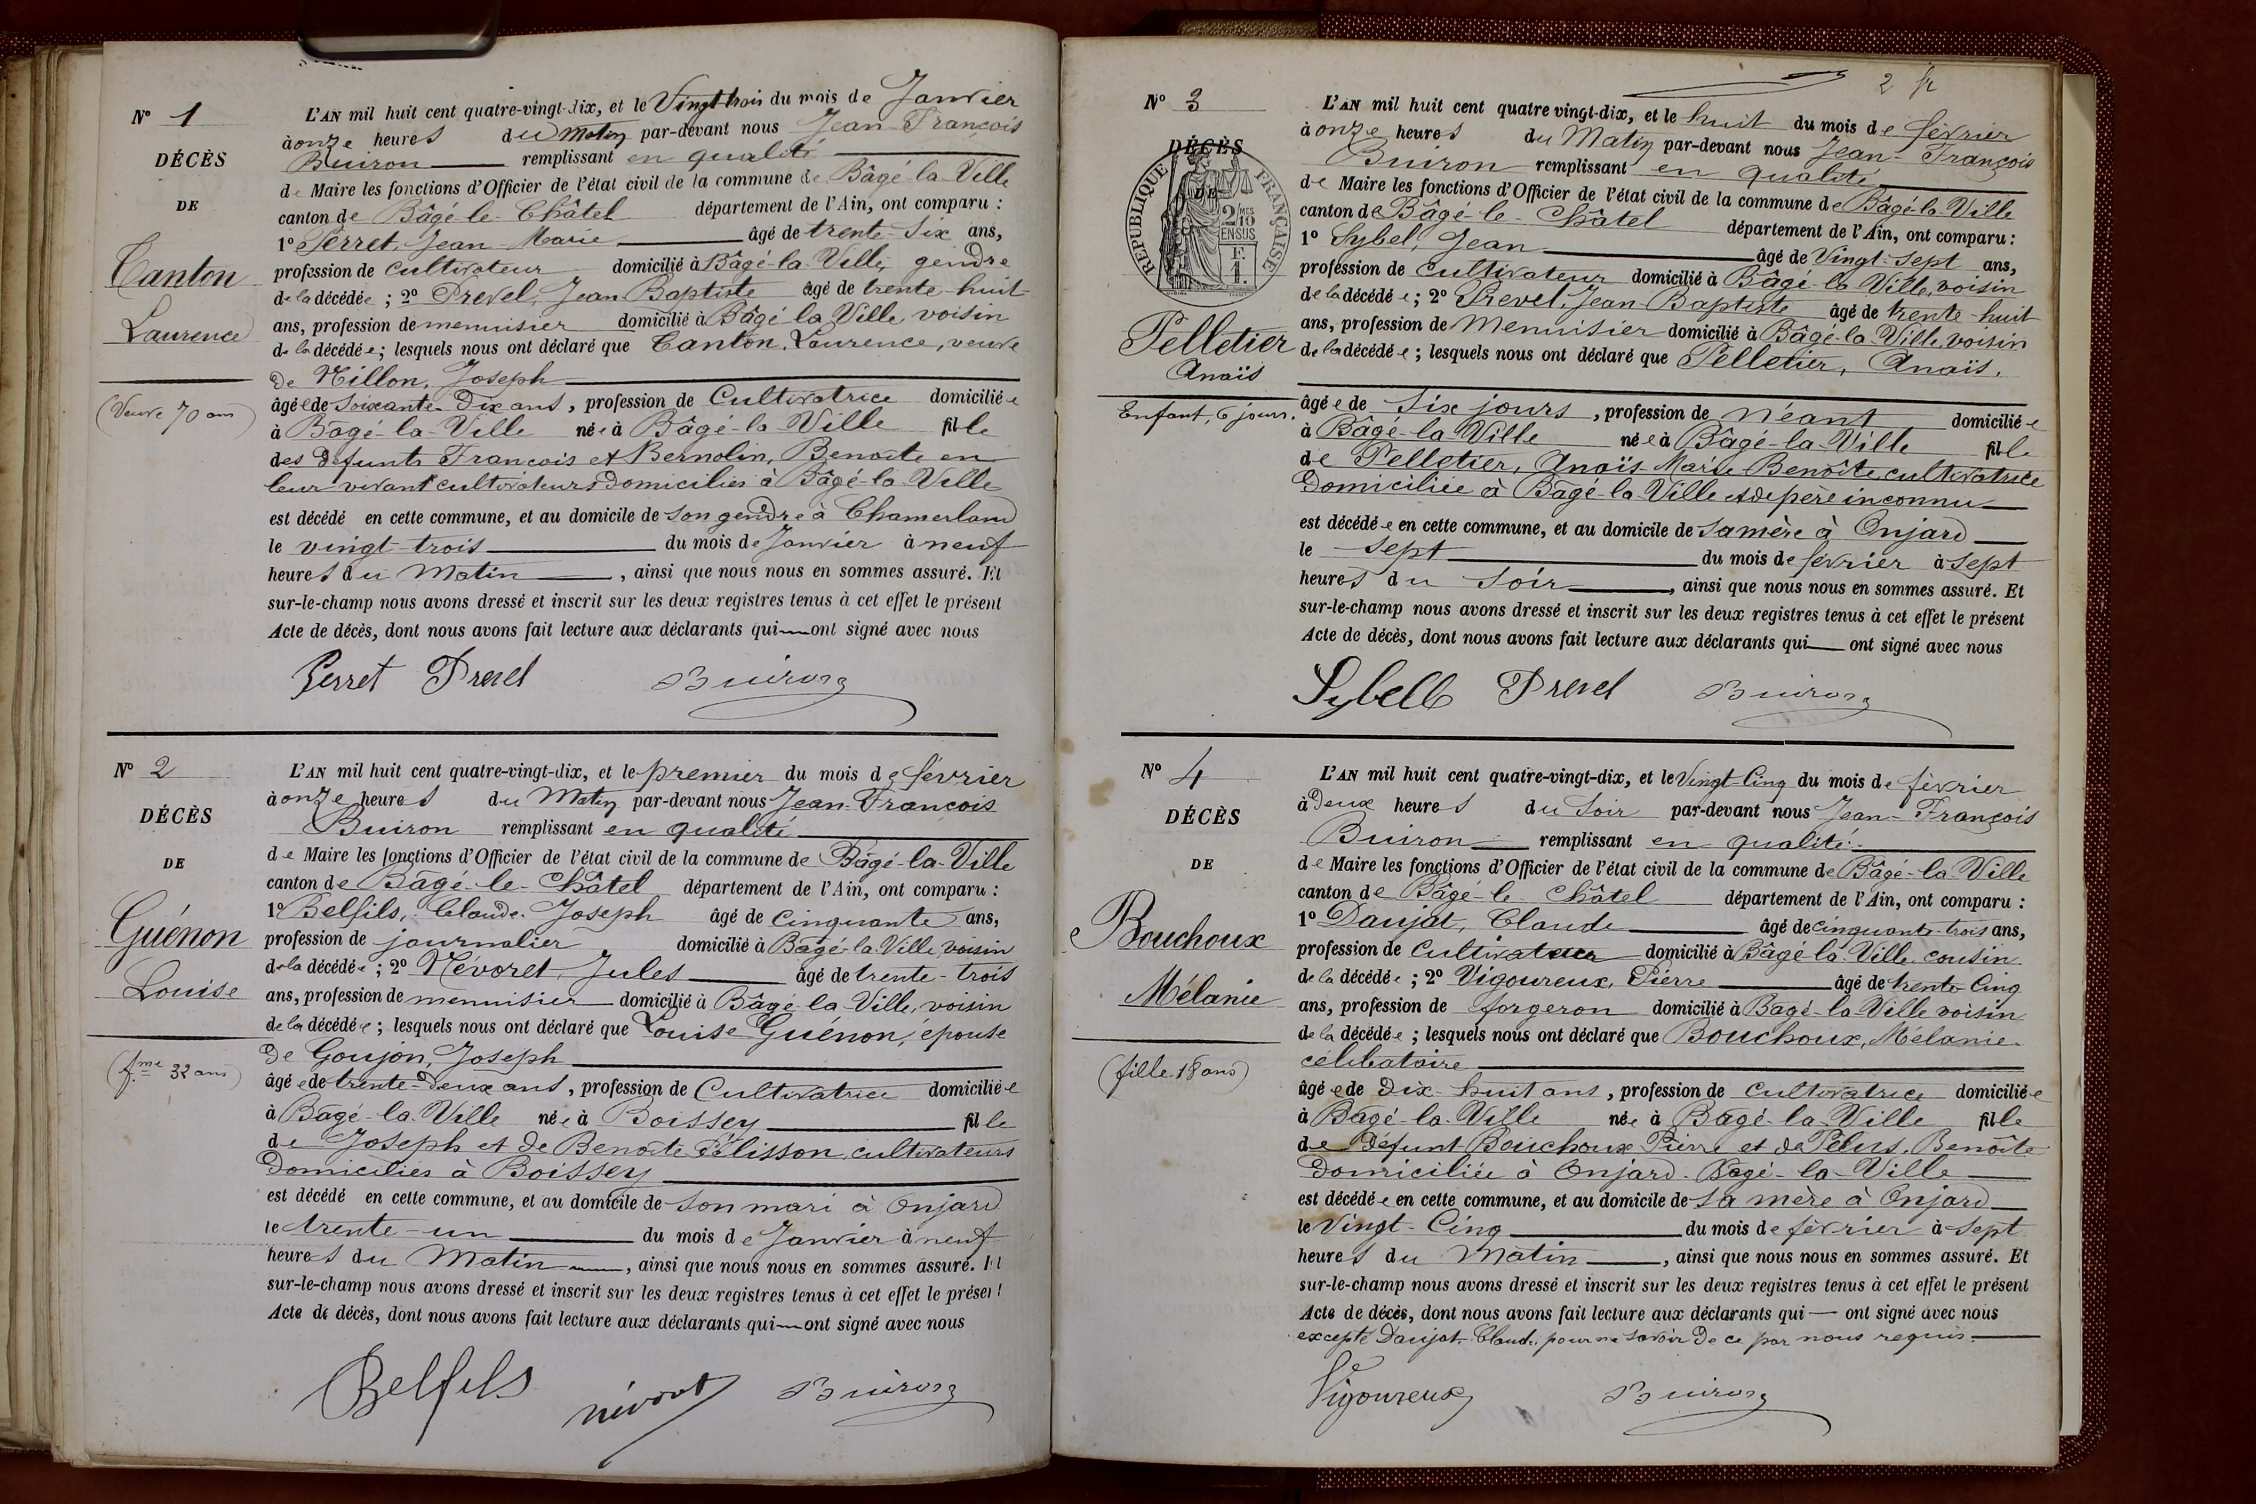 N° 1
DÉCÈS
DE
Canton
Laurence
(Veuve 70 ans)
L'AN mil huit cent quatre-vingt-dix, et le Vingt trois du mois de Janvier
à onze heures du Matin par-devant nous Jean-François
Buiron remplissant en qualité
de Maire les fonctions d'Officier de l'état civil de la commune de Bâgé-la-Ville
canton de Bâgé-le-Châtel département de l'Ain, ont comparu :
1° Perret, Jean-Marie âgé de trente-six ans,
profession de cultivateur domicilié à Bâgé-la-Ville, gendre
de la décédée ; 2° Prevel, Jean Baptiste âgé de trente-huit
ans, profession de menuisier domicilié à Bâgé la Ville, voisin
de la décédée ; lesquels nous ont déclaré que Canton, Laurence, veuve
de Nillon, Joseph
âgée de soixante-Dix ans, profession de Cultivatrice domiciliée
à Bâgé-la-Ville née à Bâgé-la-Ville fille
des défunts François et Bernolin, Benoite en
leur vivant cultivateurs domiciliés à Bâgé-la-Ville
est décédé en cette commune, et au domicile de son gendre à Chamerland
le vingt-trois du mois de Janvier à neuf
heures du Matin, ainsi que nous nous en sommes assuré. Et
sur-le-champ nous avons dressé et inscrit sur les deux registres tenus à cet effet le présent
Acte de décès, dont nous avons fait lecture aux déclarants qui ont signé avec nous
Perret Prevel Buiron
N° 2
DÉCÈS
DE
Guénon
Louise
(fme 32 ans)
L'AN mil huit cent quatre-vingt-dix, et le premier du mois de février
à onze heures du Matin par-devant nous Jean-François
Buiron remplissant en qualité
de Maire les fonctions d'Officier de l'état civil de la commune de Bâgé-la-Ville
canton de Bâgé-le-Châtel département de l'Ain, ont comparu :
1° Belfils, Claude-Joseph âgé de cinquante ans,
profession de journalier domicilié à Bâgé-la-Ville, voisin
de la décédée ; 2° Névoret, Jules âgé de trente-trois
ans, profession de menuisier domicilié à Bâgé-la-Ville, voisin
de la décédée ; lesquels nous ont déclaré que Louise Guénon, épouse
de Goujon, Joseph
âgée de trente-deux ans, profession de Cultivatrice domiciliée
à Bâgé-la-Ville née à Boissey fille
de Joseph et de Benoite Félisson, cultivateurs
Domiciliés à Boissey
est décédé en cette commune, et au domicile de son mari à Onjard
le trente-un du mois de Janvier à neuf
heures du Matin, ainsi que nous nous en sommes assuré. Et
sur-le-champ nous avons dressé et inscrit sur les deux registres tenus à cet effet le présent
Acte de décès, dont nous avons fait lecture aux déclarants qui ont signé avec nous
Belfils névoret Buiron
2
N° 3
DÉCÈS
DE
RÉPUBLIQUE FRANÇAISE
2/10 MES
EN SUS
F.
1.
Pelletier
Anaïs
Enfant, 6 jours.
L'AN mil huit cent quatre vingt-dix, et le huit du mois de février
à onze heures du Matin par-devant nous Jean-François
Buiron remplissant en qualité
de Maire les fonctions d'Officier de l'état civil de la commune de Bâgé-la-Ville
canton de Bâgé-le-Châtel département de l'Ain, ont comparu :
1° Sybel, Jean âgé de Vingt-sept ans,
profession de cultivateur domicilié à Bâgé la Ville, voisin
de la décédée ; 2° Prevel, Jean-Baptiste âgé de trente-huit
ans, profession de Menuisier domicilié à Bâgé-la-Ville, voisin
de la décédée ; lesquels nous ont déclaré que Pelletier, Anaïs,
âgée de six jours, profession de néant domiciliée
à Bâgé-la-Ville née à Bâgé-la-Ville fille
de Pelletier, Anaïs-Marie-Benoîte, cultivatrice
Domiciliée à Bâgé-la-Ville et de père inconnu
est décédée en cette commune, et au domicile de sa mère à Onjard
le sept du mois de février à sept
heures du soir, ainsi que nous nous en sommes assuré. Et
sur-le-champ nous avons dressé et inscrit sur les deux registres tenus à cet effet le présent
Acte de décès, dont nous avons fait lecture aux déclarants qui ont signé avec nous
Sybell Prevel Buiron
N° 4
DÉCÈS
DE
Bouchoux
Mélanie
(fille 18 ans)
L'AN mil huit cent quatre-vingt-dix, et le Vingt-Cinq du mois de février
à Deux heures du Soir par-devant nous Jean-François
Buiron remplissant en qualité
de Maire les fonctions d'Officier de l'état civil de la commune de Bâgé-la-Ville
canton de Bâgé-le Châtel département de l'Ain, ont comparu :
1° Daujat, Claude âgé de cinquante-trois ans,
profession de Cultivateur domicilié à Bâgé-la-Ville, cousin
de la décédée ; 2° Vigoureux, Pierre âgé de trente-Cinq
ans, profession de forgeron domicilié à Bâgé-la-Ville voisin
de la décédée ; lesquels nous ont déclaré que Bouchoux, Mélanie
célibataire
âgée de Dix-huit ans, profession de cultivatrice domiciliée
à Bâgé-la-Ville née à Bâgé-la-Ville fille
de Défunt Bouchoux Pierre et de Pelus, Benoîte
Domiciliée à Onjard. Bâgé-la-Ville
est décédée en cette commune, et au domicile de sa mère à Onjard
le Vingt-Cinq du mois de février à sept
heures du Matin, ainsi que nous nous en sommes assuré. Et
sur-le-champ nous avons dressé et inscrit sur les deux registres tenus à cet effet le présent
Acte de décès, dont nous avons fait lecture aux déclarants qui ont signé avec nous
excepté Daujat Claude pour ne savoir De ce par nous requis
Vigoureux Buiron